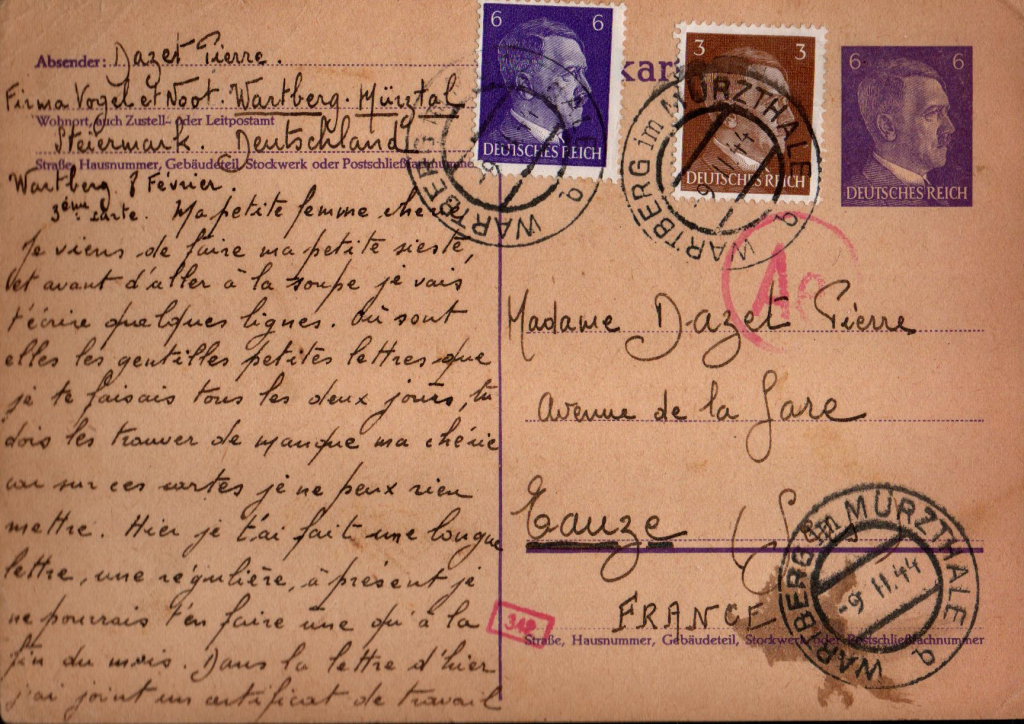 Absender: Dazet Pierre.
Firma Vogel et Noot. Wartberg. Mürztal
Wohnort, auch Zustell- oder Leitpostamt
Steiermark. Deutschland
Straße, Hausnummer, Gebäudeteil, Stockwerk oder Postschließfachnummer
Wartberg 8 Février.
3ème carte. Ma petite femme chérie
Je viens de faire ma petite sieste,
et avant d'aller à la soupe je vais
t'écrire quelques lignes. Où sont
elles les gentilles petites lettres que
je te faisais tous les deux jours, tu
dois les trouver de manque ma chérie
car sur ces cartes je ne peux rien
mettre. Hier je t'ai fait une longue
lettre, une régulière, à présent je
ne pourrais t'en faire une qu'à la
fin du mois. Dans la lettre d'hier
j'ai joint un certificat de travail
6 6
DEUTSCHES REICH
kar
3 3
DEUTSCHES REICH
6 6
DEUTSCHES REICH
WARTBERG im MÜRZTHALE
b
WARTBERG im MÜRZTHALE
-9.II.44
b
Madame Dazet Pierre
Avenue de la Gare
Eauze
FRANCE
Straße, Hausnummer, Gebäudeteil, Stockwerk oder Postschließfachnummer
WARTBERG im MÜRZTHALE
-9.II.44
b